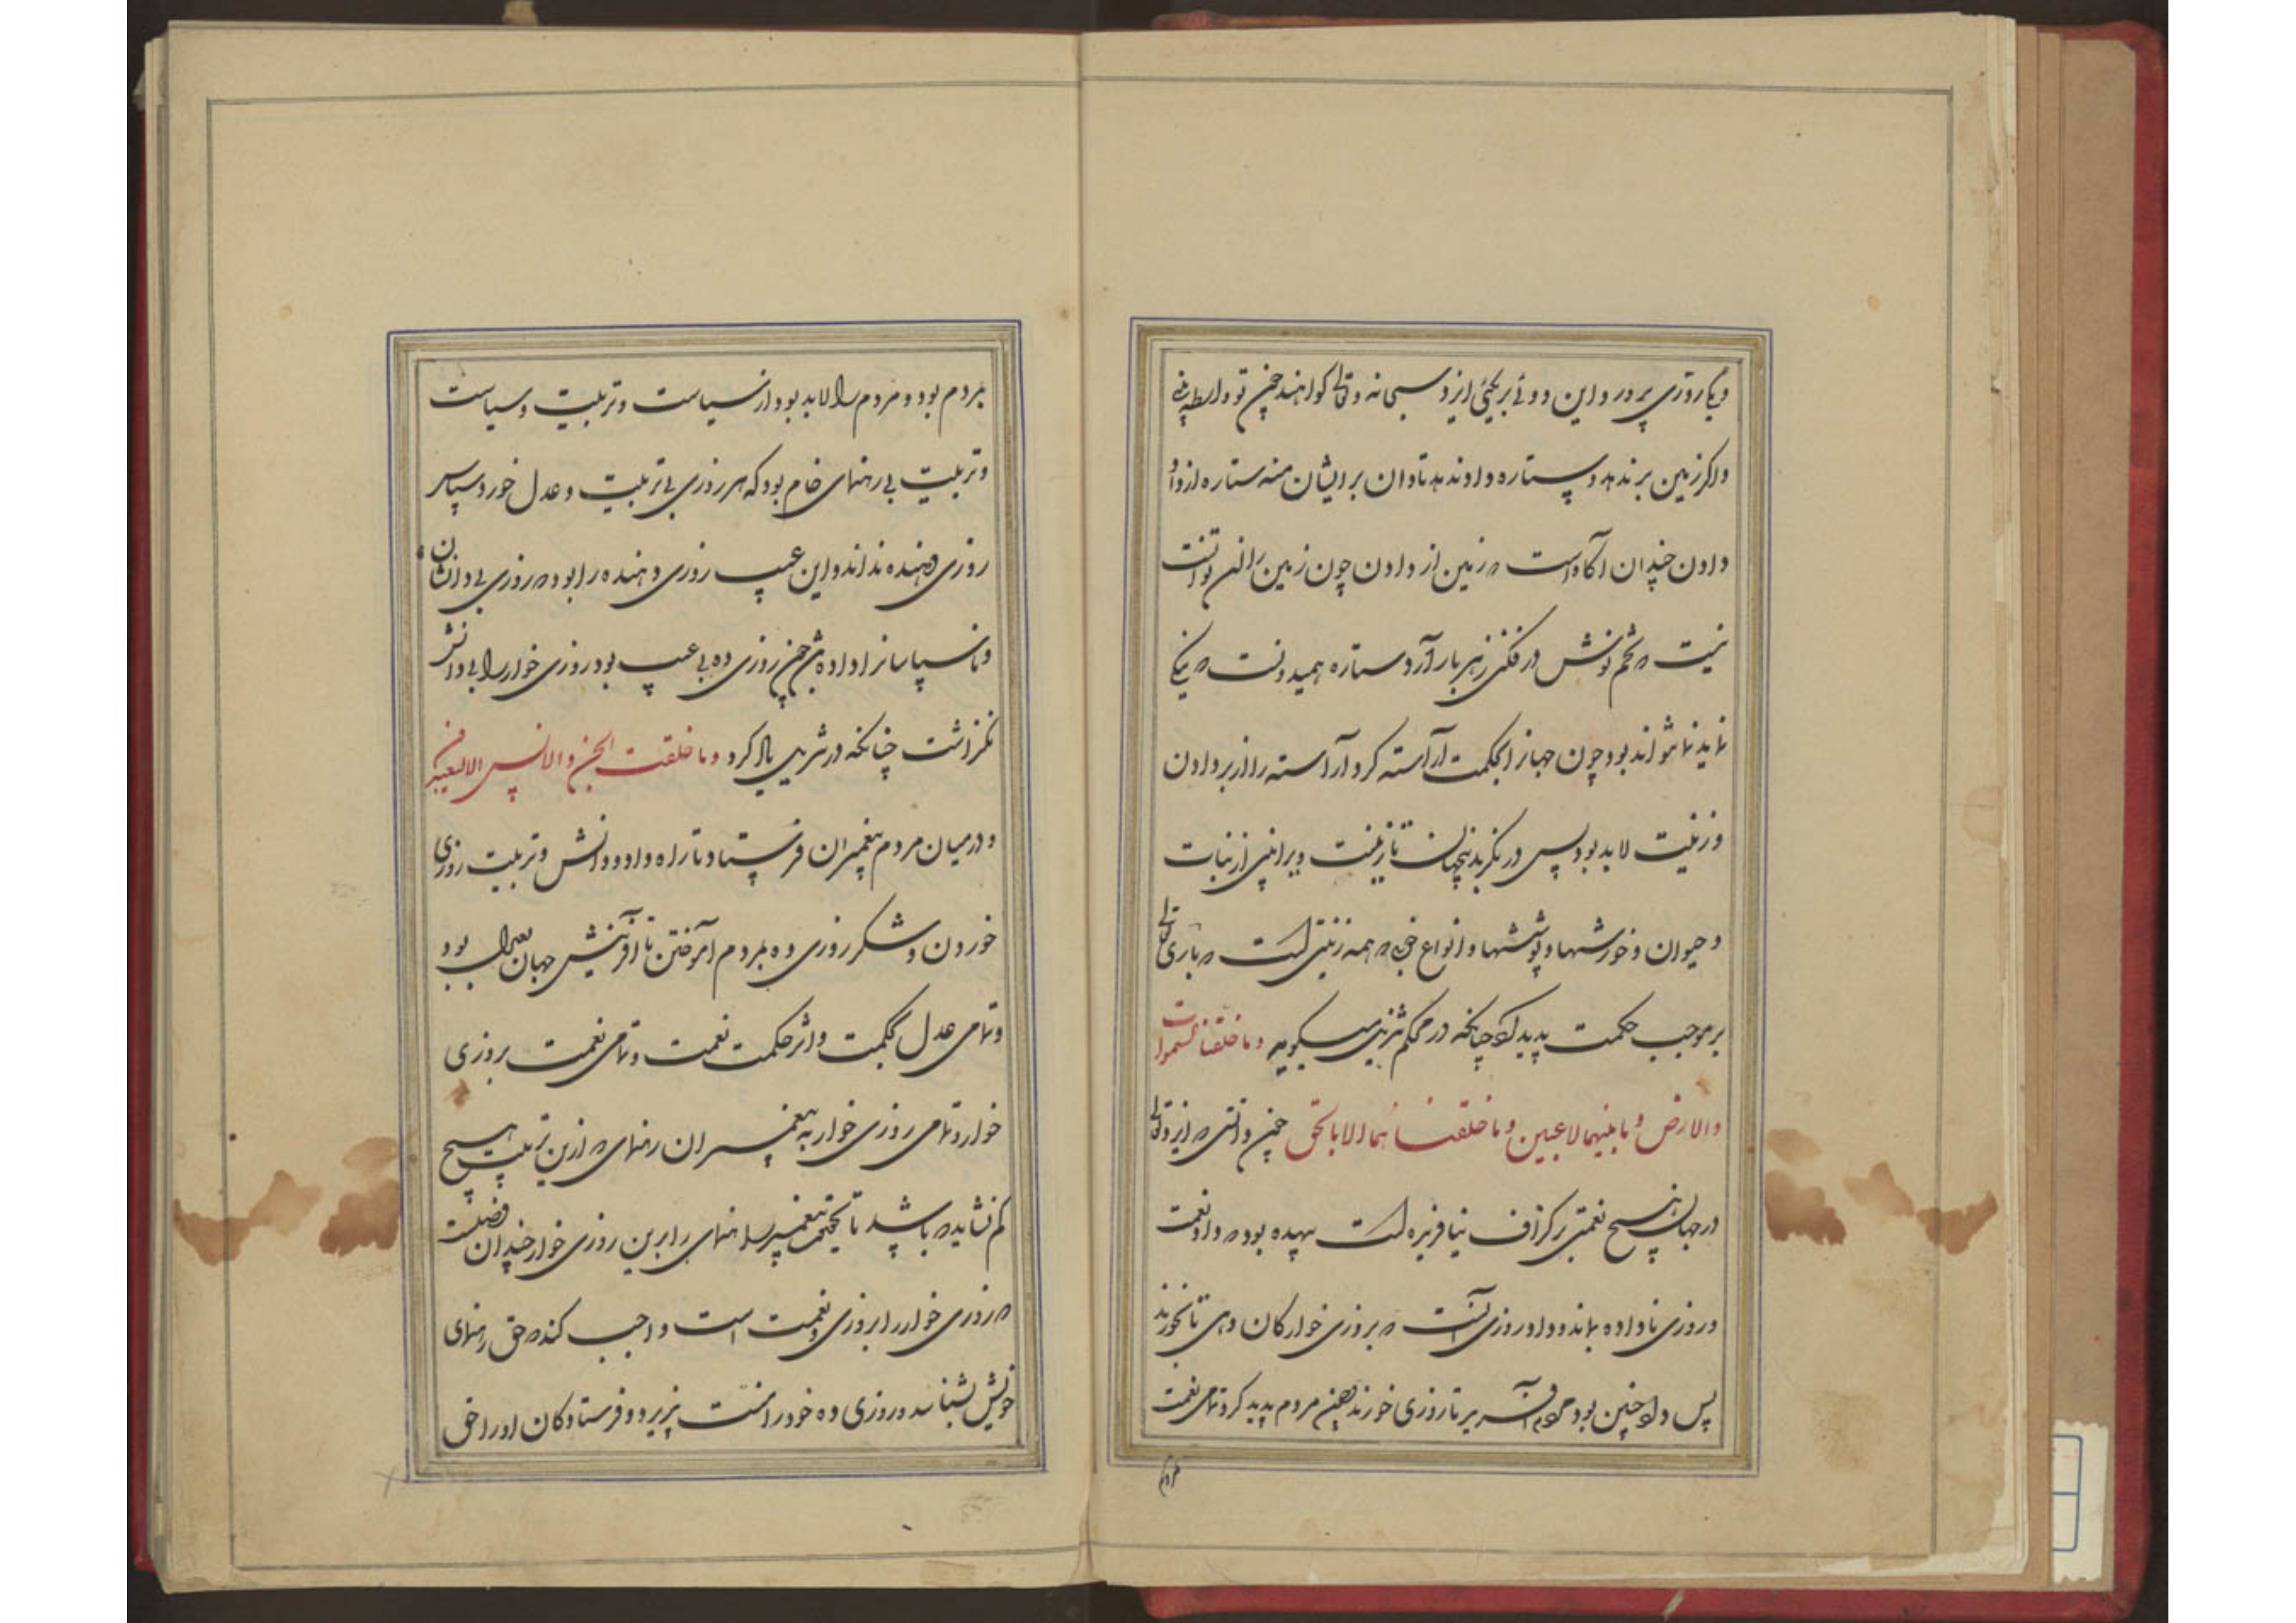 و یکی روزی پرور و این دوئی بر یکیئی ایزد سبحانه و تعالی گوا اند چون تو واسطه بینی
و اگر زمین بر ندهد و ستاره داد ندهد تاوان بر ایشان منه ستاره از داد
دادن چندان آگاه است که زمین از دادن چون زمین را آن توانست
نیست که تخم نوش در فکنی زهر بار آرد ستاره همیدونست که نیکی
نماید نتواند بود چون جهان را بحکمت آراسته کرد آراسته را از بر دادن
و زینت لابد بود پس در نگر بدین جهان تا زینت وی بینی از نبات
و حیوان و خورشها و پوششها و انواع خوبی که همه زینتی است که باری تعالی
بر موجب حکمت پدید کرد چنانکه در محکم تنزیل میگوید وما خلقنا السموات
والارض وما بینهما لاعبین وما خلقناهما الا بالحق چون دانستی که ایزد تعالی
در جهان هیچ نعمتی بر گزاف نیافریده است بیهده بود که داد نعمت
و روزی ناداده ماند و داد روزی آنست که بروزی خوارگان دهی تا بخورند
پس داد چنین بود مردم آفرید تا روزی خورند چون مردم پدید کرد تمامی نعمت
مردم
بمردم بود و مردم را لابد بود از سیاست و تربیت و سیاست
و تربیت بی رهنمای خام بود که هر روزی بی تربیت و عدل خورد سپاس
روزی دهنده نداند و این عیب روزی دهنده را بود که روزی بی دانشان
و ناسپاسانرا داده چون روزی ده بی عیب بود روزی خوار را بی دانش
نگذاشت چنانکه در تنزیل یاد کرد وما خلقت الجن والانس الا لیعبدون
و در میان مردم پیغمبران فرستاد تا راه داد و دانش و تربیت روزی
خوردن و شکر روزی ده بمردم آموختن تا آفرینش جهان بعدل بود
و تمامی عدل بحکمت و اثر حکمت نعمت و تمامی نعمت بروزی
خوار و تمامی روزی خوار به پیغمبران رهنمای که ازین تربیت هیچ
کم نشاید که باشد تا بحقیقت پیغمبر رهنمای را برین روزی خوار چندان فضلست
که روزی خوار را بروزی و نعمت است واجب کند که حق رهنمای
خویش بشناسد و روزی ده خود را منت پذیرد و فرستادگان او را حق